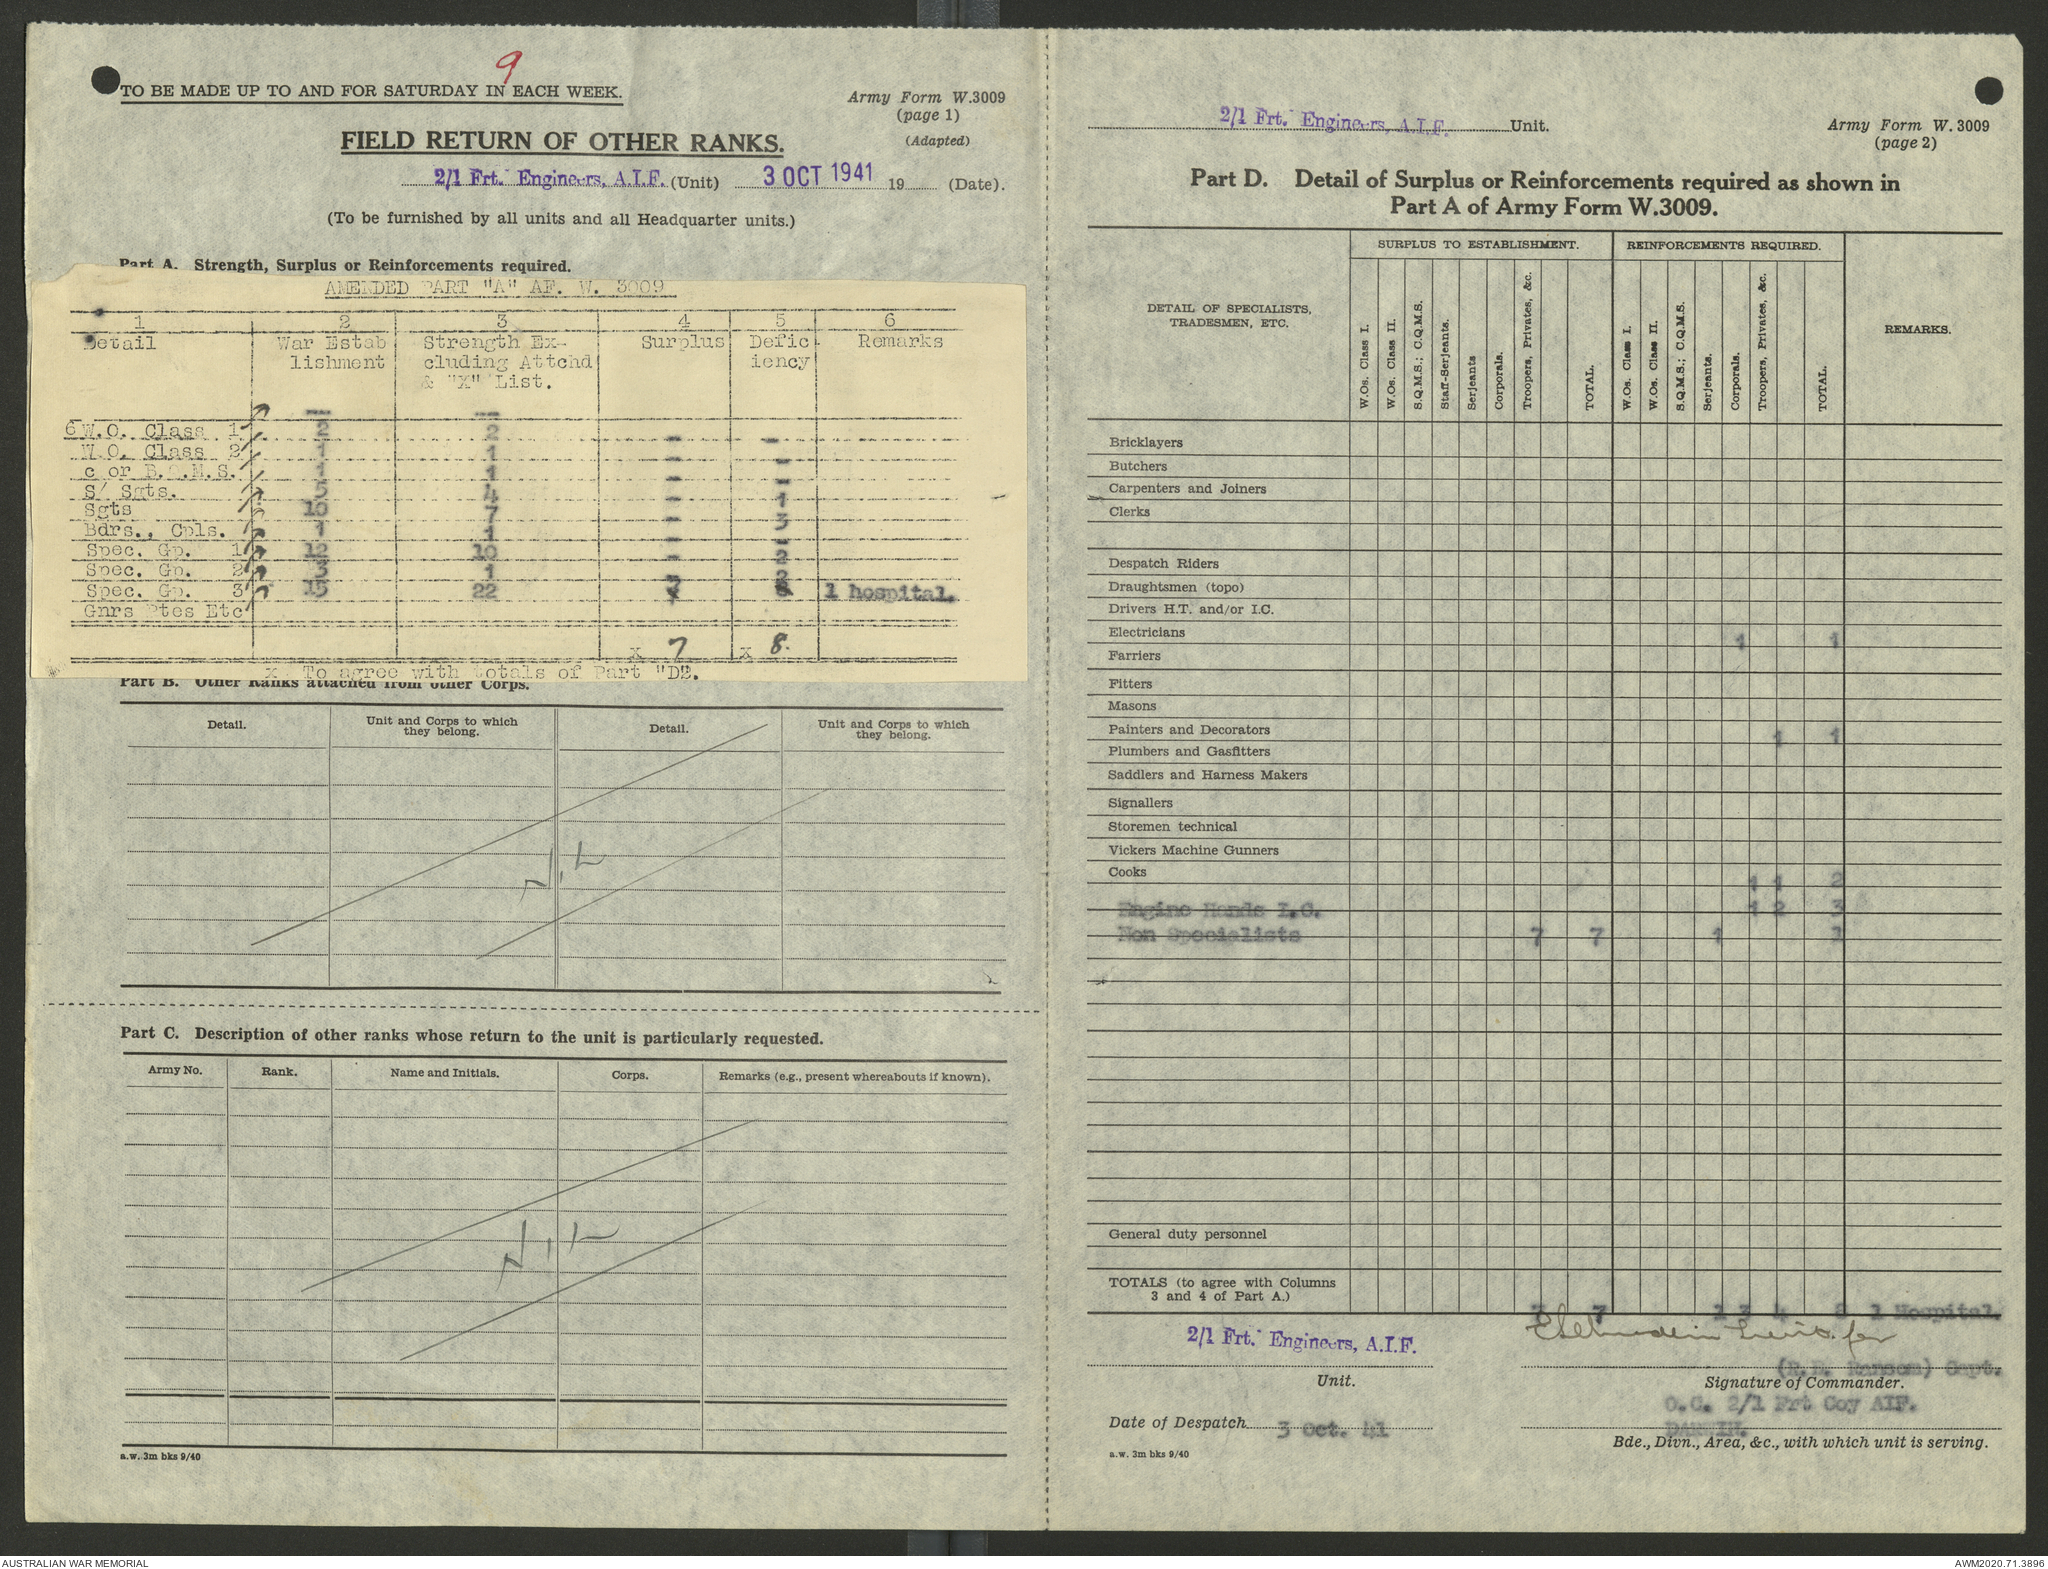 9
TO BE MADE UP TO AND FOR SATURDAY IN EACH WEEK.
Army Form W.3009
(page 1)
(Adapted)
FIELD RETURN OF OTHER RANKS.
2/1 Frt. Engineers, A.I.F. (Unit) 3 OCT 1941 19 (Date).
(To be furnished by all units and all Headquarter units.)
Part A. Strength, Surplus or Reinforcements required.
AMENDED PART "A" AF. W. 3009
1 2 3 4 5 6
Detail War Estab Strength Ex- Surplus Defic Remarks
lishment cluding Attchd iency
& "X" List.
— —
6 W.O. Class 1 2 2 - -
W.O. Class 2 1 1 - -
c or B.Q.M.S. 1 1 - -
S/ Sgts. 5 4 - 1
Sgts 10 7 - 3
Bdrs., Cpls. 1 1 - -
Spec. Gp. 1 12 10 - 2
Spec. Gp. 2 3 1 2
Spec. Gp. 3 15 22 7 1 hospital.
Gnrs Ptes Etc
x 7 x 8.
x To agree with totals of Part "D".
Part B. Other Ranks attached from other Corps.
Detail. Unit and Corps to which they belong. Detail. Unit and Corps to which they belong.
NIL
Part C. Description of other ranks whose return to the unit is particularly requested.
Army No. Rank. Name and Initials. Corps. Remarks (e.g., present whereabouts if known).
NIL
a.w. 3m bks 9/40
2/1 Frt. Engineers, A.I.F. Unit.
Army Form W. 3009
(page 2)
Part D. Detail of Surplus or Reinforcements required as shown in
Part A of Army Form W.3009.
SURPLUS TO ESTABLISHMENT. REINFORCEMENTS REQUIRED.
DETAIL OF SPECIALISTS,
TRADESMEN, ETC.
W.Os. Class I.
W.Os. Class II.
S.Q.M.S.; C.Q.M.S.
Staff-Serjeants.
Serjeants
Corporals.
Troopers, Privates, &c.
TOTAL.
W.Os. Class I.
W.Os. Class II.
S.Q.M.S.; C.Q.M.S.
Serjeants.
Corporals.
Troopers, Privates, &c.
TOTAL.
REMARKS.
Bricklayers
Butchers
Carpenters and Joiners
Clerks
Despatch Riders
Draughtsmen (topo)
Drivers H.T. and/or I.C.
Electricians 1 1
Farriers
Fitters
Masons
Painters and Decorators 1 1
Plumbers and Gasfitters
Saddlers and Harness Makers
Signallers
Storemen technical
Vickers Machine Gunners
Cooks 1 1 2
Engine Hands I.C. 1 2 3
Non Specialists 7 7 1 1
General duty personnel
TOTALS (to agree with Columns
3 and 4 of Part A.)
7 7 1 3 4 8 1 Hospital.
2/1 Frt. Engineers, A.I.F.
Unit.
Lieut. for
Capt.
Signature of Commander.
O.C. 2/1 Frt Coy AIF.
Date of Despatch 3 Oct. 41
DARWIN.
Bde., Divn., Area, &c., with which unit is serving.
a.w. 3m bks 9/40
AUSTRALIAN WAR MEMORIAL
AWM2020.71.3896